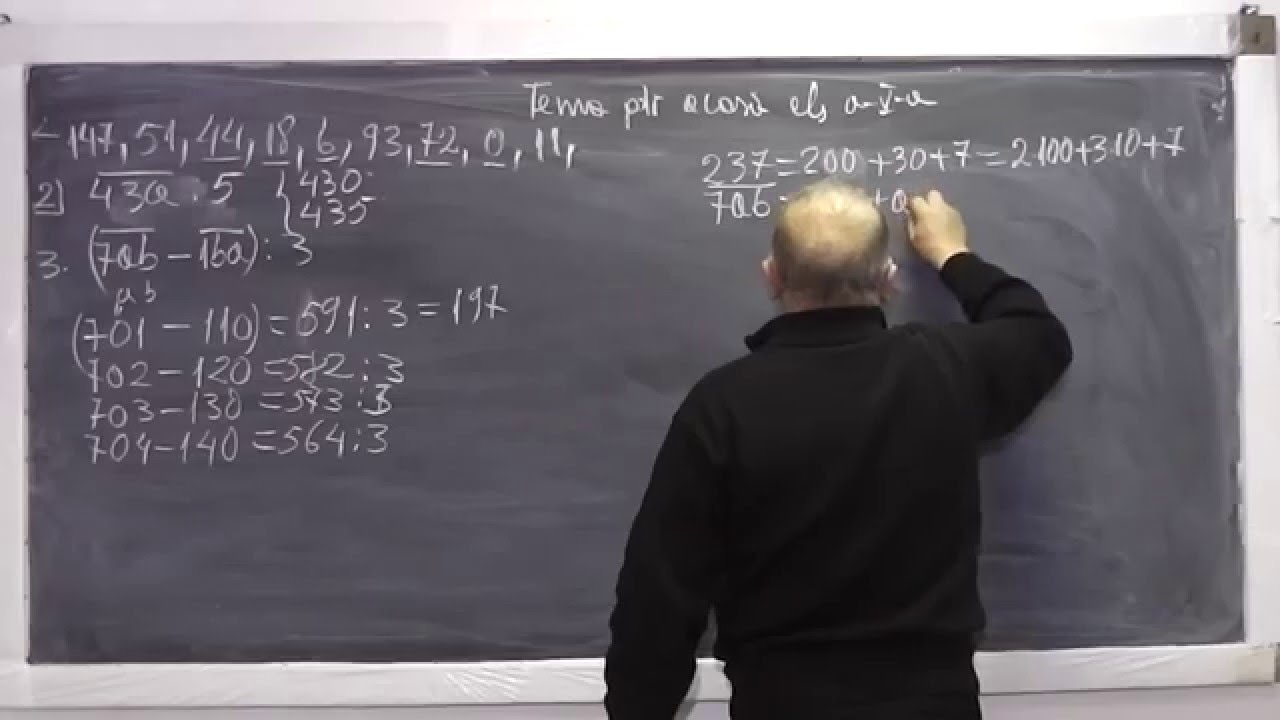 Tema ptr acasă cls a-V-a
147, 51, 44, 18, 6, 93, 72, 0, 11,
2) 43a : 5 { 430
435
3. (7ab – 1ba) : 3
a b
(701 – 110) = 591 : 3 = 197
702 – 120 = 582 : 3
703 – 130 = 573 : 3
704 – 140 = 564 : 3
237 = 200 + 30 + 7 = 2·100 + 3·10 + 7
7ab = + a